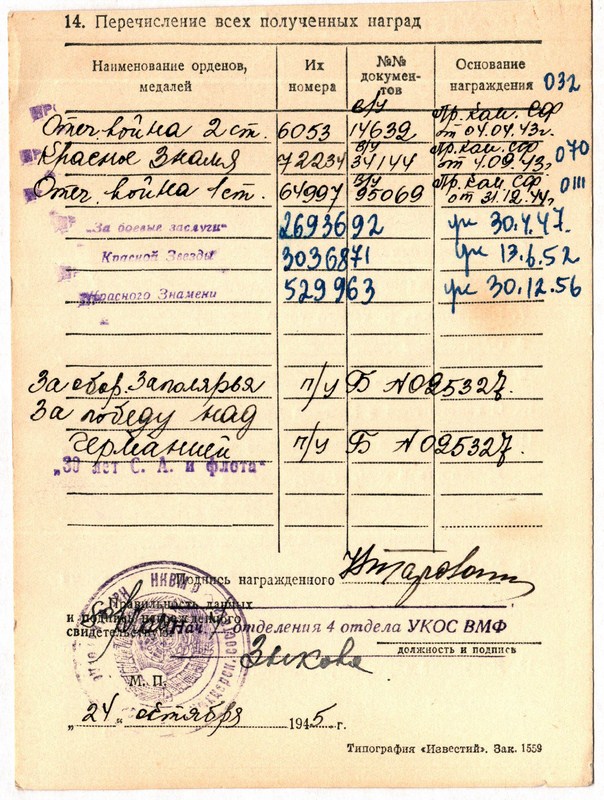 14. Перечисление всех полученных наград
Наименование орденов, медалей
Их номера
№№ документов
Основание награждения
032
Отеч. война 2 ст. 6053 в/у 14632 Пр. Ком. СФ от 04.04.43г.
Красное Знамя 72234 в/у 34144 Пр. Ком. СФ от 4.09.43г. 070
Отеч. война 1 ст. 64997 в/у 95069 Пр. Ком. СФ от 31.12.44г. 0111
„За боевые заслуги“ 2693692 ук 30.4.47.
Красной Звезды 3036871 ук 13.6.52
Красного Знамени 529963 ук 30.12.56
За обор. Заполярья п/у Б №025327.
За победу над
Германией п/у Б №025327.
„30 лет С. А. и флота“
Подпись награжденного
Правильность данных
и подпись награжденного
свидетельствую Нач. отделения 4 отдела УКОС ВМФ
должность и подпись
Зыкова
М. П.
„24“ октября 1945 г.
Типография «Известий». Зак. 1559